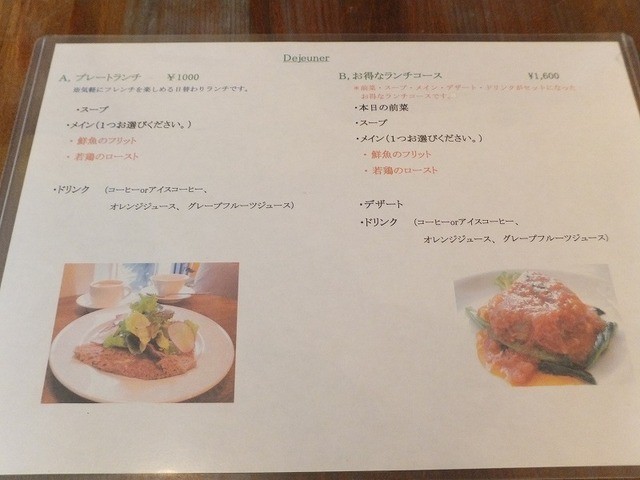 Dejeuner
A. プレートランチ ￥1000
お気軽にフレンチを楽しめる日替わりランチです。
・スープ
・メイン（1つお選びください。）
・鮮魚のフリット
・若鶏のロースト
・ドリンク （コーヒーorアイスコーヒー、
オレンジジュース、グレープフルーツジュース）
B. お得なランチコース ￥1,600
＊前菜・スープ・メイン・デザート・ドリンクがセットになった
お得なランチコースです。
・本日の前菜
・スープ
・メイン（1つお選びください。）
・鮮魚のフリット
・若鶏のロースト
・デザート
・ドリンク （コーヒーorアイスコーヒー、
オレンジジュース、グレープフルーツジュース）